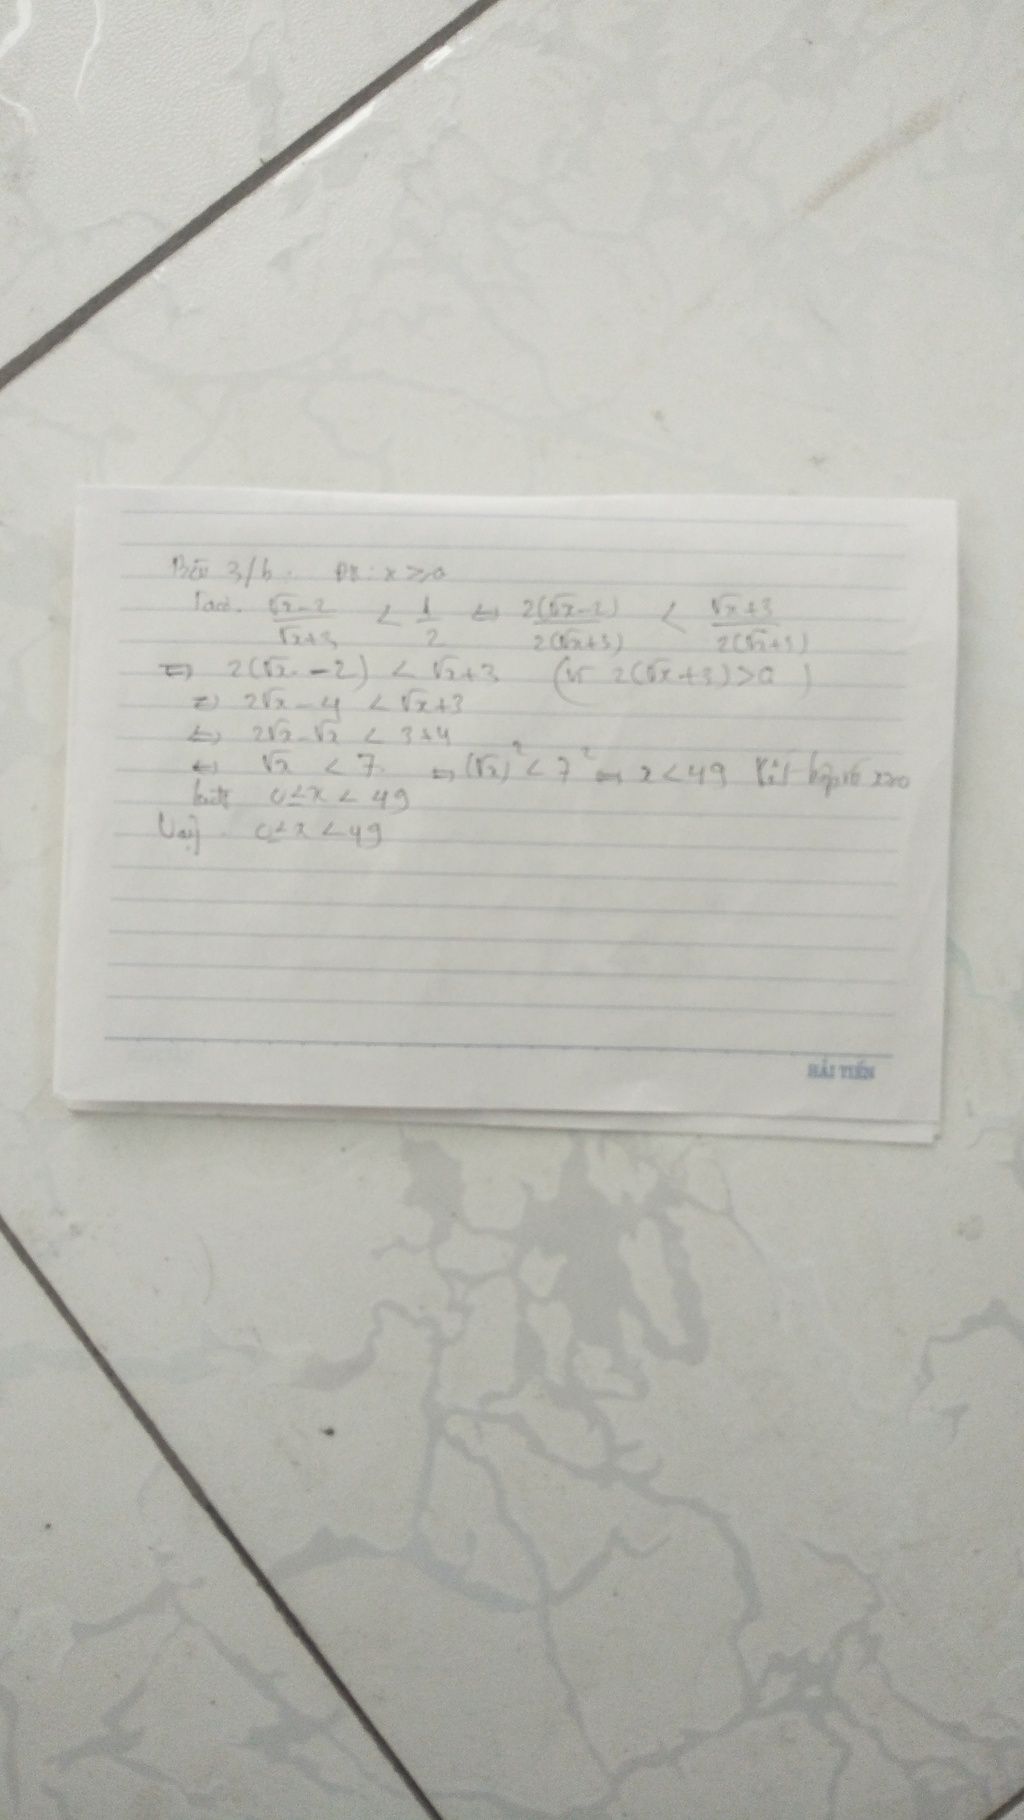 Bài 3/b. ĐK: x ≥ 0
Ta có. (√x-2)/(√x+3) < 1/2 ⇔ 2(√x-2)/2(√x+3) < (√x+3)/2(√x+3)
⇔ 2(√x-2) < √x+3 (vì 2(√x+3)>0)
⇔ 2√x-4 < √x+3
⇔ 2√x-√x < 3+4
⇔ √x < 7. ⇔ (√x)² < 7² ⇔ x < 49 Kết hợp x≥0
0≤x < 49
Vậy 0≤x < 49
HẢI TIẾN